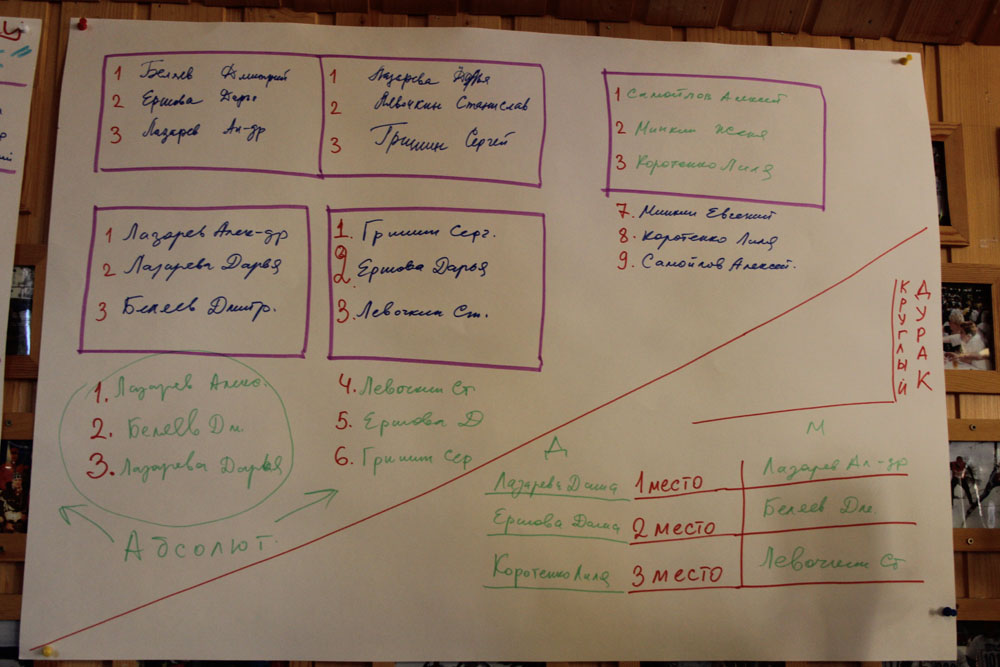 1 Беляев Дмитрий
2 Ершова Дарья
3 Лазарев Ал-др
1 Лазарева Дарья
2 Лёвочкин Станислав
3 Гришин Сергей
1 Самойлов Алексей
2 Минкин
3 Коротенко Лиля
7. Минкин Евгений
8. Коротенко Лиля
9. Самойлов Алексей.
1 Лазарев Алек-др
2 Лазарева Дарья
3 Беляев Дмитр.
1. Гришин Серг.
2. Ершова Дарья
3. Левочкин Ст.
1. Лазарев Алекс.
2. Беляев Дм.
3. Лазарева Дарья
4. Левочкин Ст
5. Ершова Д
6. Гришин Сер
Абсолют.
КРУГЛЫЙ
ДУРАК
Д
М
Лазарева Даша 1 МЕСТО Лазарев Ал-др
Ершова Даша 2 МЕСТО Беляев Дм.
Коротенко Лиля 3 МЕСТО Левочкин Ст